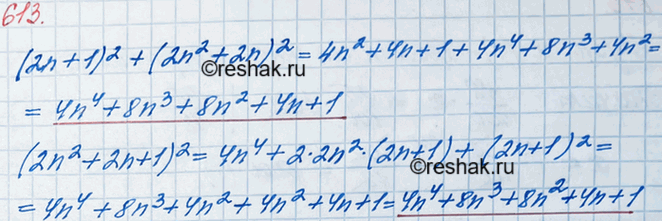 613.
(2n+1)² + (2n²+2n)² = 4n²+4n+1+4n⁴+8n³+4n² =
©reshak.ru
= 4n⁴+8n³+8n²+4n+1
(2n²+2n+1)² = 4n⁴+2·2n²·(2n+1)+(2n+1)² =
©reshak.ru
= 4n⁴+8n³+4n²+4n²+4n+1=4n⁴+8n³+8n²+4n+1